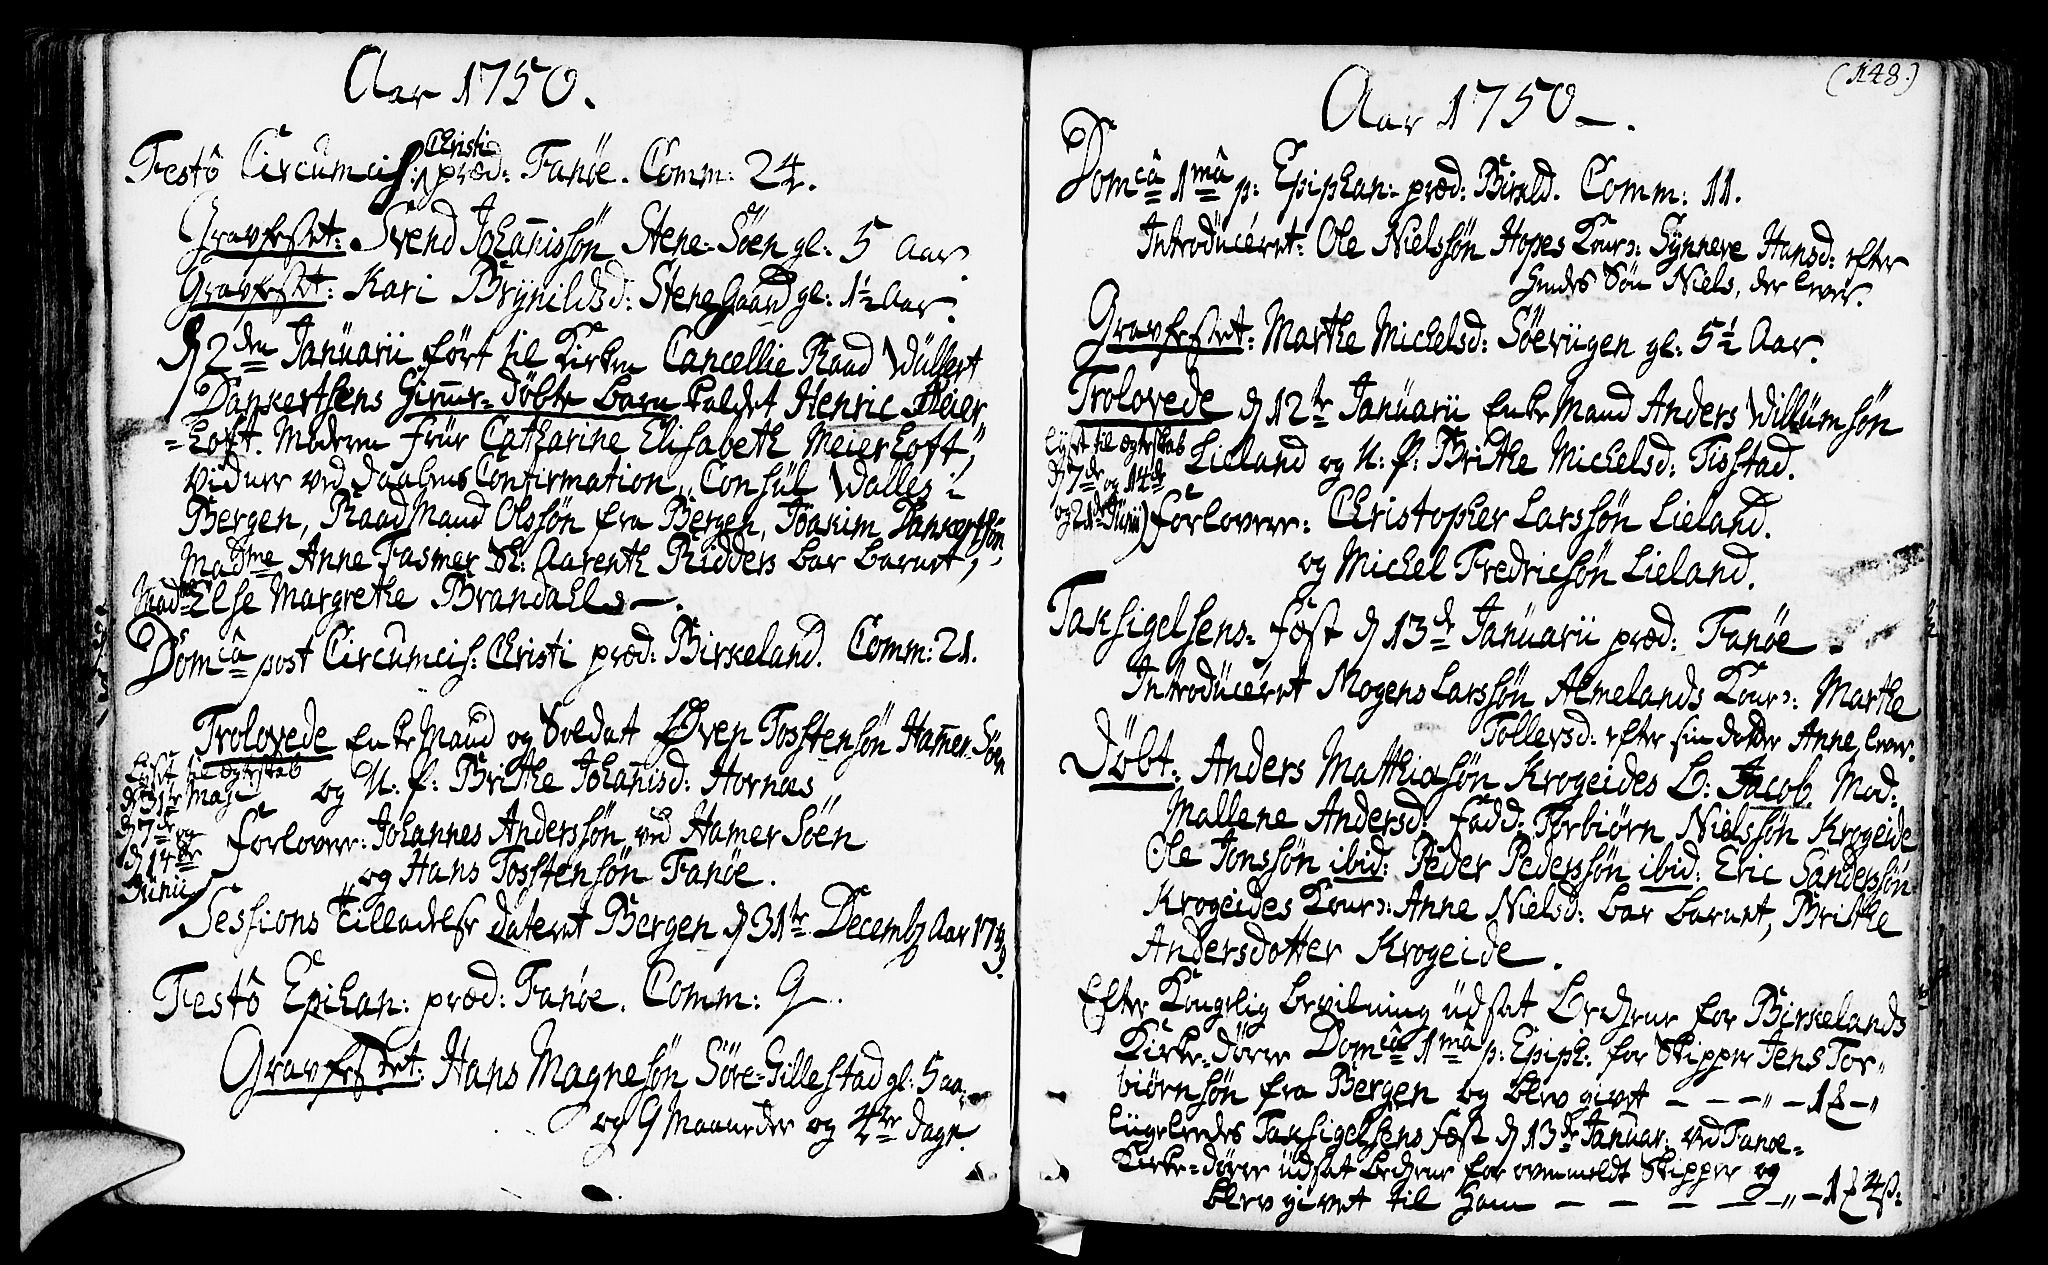 Aar 1750.
Festô Circumcis: Christi præd: Fanöe. Comm: 24.
Gravfestet: Svend Johañissön Stene-Söen gl: 5 Aar.
Gravfestet: Kari Brÿnildsd: Stene Gaard gl: 1½ Aar.
d 2den Januarii ført til Kirken Cancellie Raad Wüllert
Dankertsens Hiemme-döbte barn kaldet Henric Meier
=hoft. Moderen Frue Catharine Elisabeth Meierhoft,
vidner ved daabens Confirmation, Consül Walles i
Bergen, Raad Mand Olssön fra Bergen, Joakim Dankertsön
Madme Anne Fasmer Sl: Aarenth Ridders bar barnet,
Madme Else Margrethe Brandahls.
Domcâ post Circumcis: Christi præd: Birkeland. Comm: 21.
Trolovede Enke Mand og Soldat Even Tosstensön Hamer-Söen
og U. p: Brithe Johañisd: Hornæs
lÿst til ægteskab
d 31te Maji
d 7de og
d 14de
Junii
Forlover: Johannes Anderssön ved Hamer Söen
og Hans Tosstensön Fanöe.
Sessions Tilladelse dateret Bergen d 31te Decembr Aar 1749.
Festô Epihan: præd: Fanöe. Comm: 9.
Gravfestet: Hans Magnesön Söre-Gillestad gl: 5 aar
og 9 Maaneder og 4re dage.
(148.)
Aar 1750.
Domcâ 1mâ p: Epiphan: præd: Birkld. Comm: 11.
Introduceret: Ole Nielssön Hopes Kone: Synneve Hansd: efter
hendes Sön Niels, der lever.
Gravfestet: Marthe Michelsd: Söevügen gl: 5½ Aar.
Trolovede d 12te Januarii Enke Mand Anders Willumsön
Lieland og U: p: Brithe Michelsd: Tisstad.
lÿst til ægteskab
d 7de og 14de
og 21de Junii
Forlovere: Christopher Larssön Lieland.
og Michel Fredricsön Lieland.
Taksigelsens-Fæst d 13de Januarii præd: Fanöe.
Introduceret Mogens Larssön Almelands Kone: Marthe
Tollevsd: efter sin dotter Anne, lever.
Döbt: Anders Matthiasön Krogeides B: Jacob. Mod:
Mallene Andersd: Fadd: Torbiörn Nielssön Krogeide
Ole Jonssön ibid: Peder Pederssön ibid: Eric Sanderssön
Krogeides Kone: Anne Nielsd: bar barnet, Brithe
Andersdotter Krogeide.
Efter Kongelig bevilning üdsat Bechene for Birkelands
Kirke-dörer Domcâ 1mâ p: Epiph: for Skipper Jens Tor-
biörnsön fra Bergen og blev givet
liigeleedes Taksigelsens fæst d 13de Januar: ved Fanöe-
Kirke-dörer üdsat bechene for ovenmeldt Skipper og
blev givet til ham